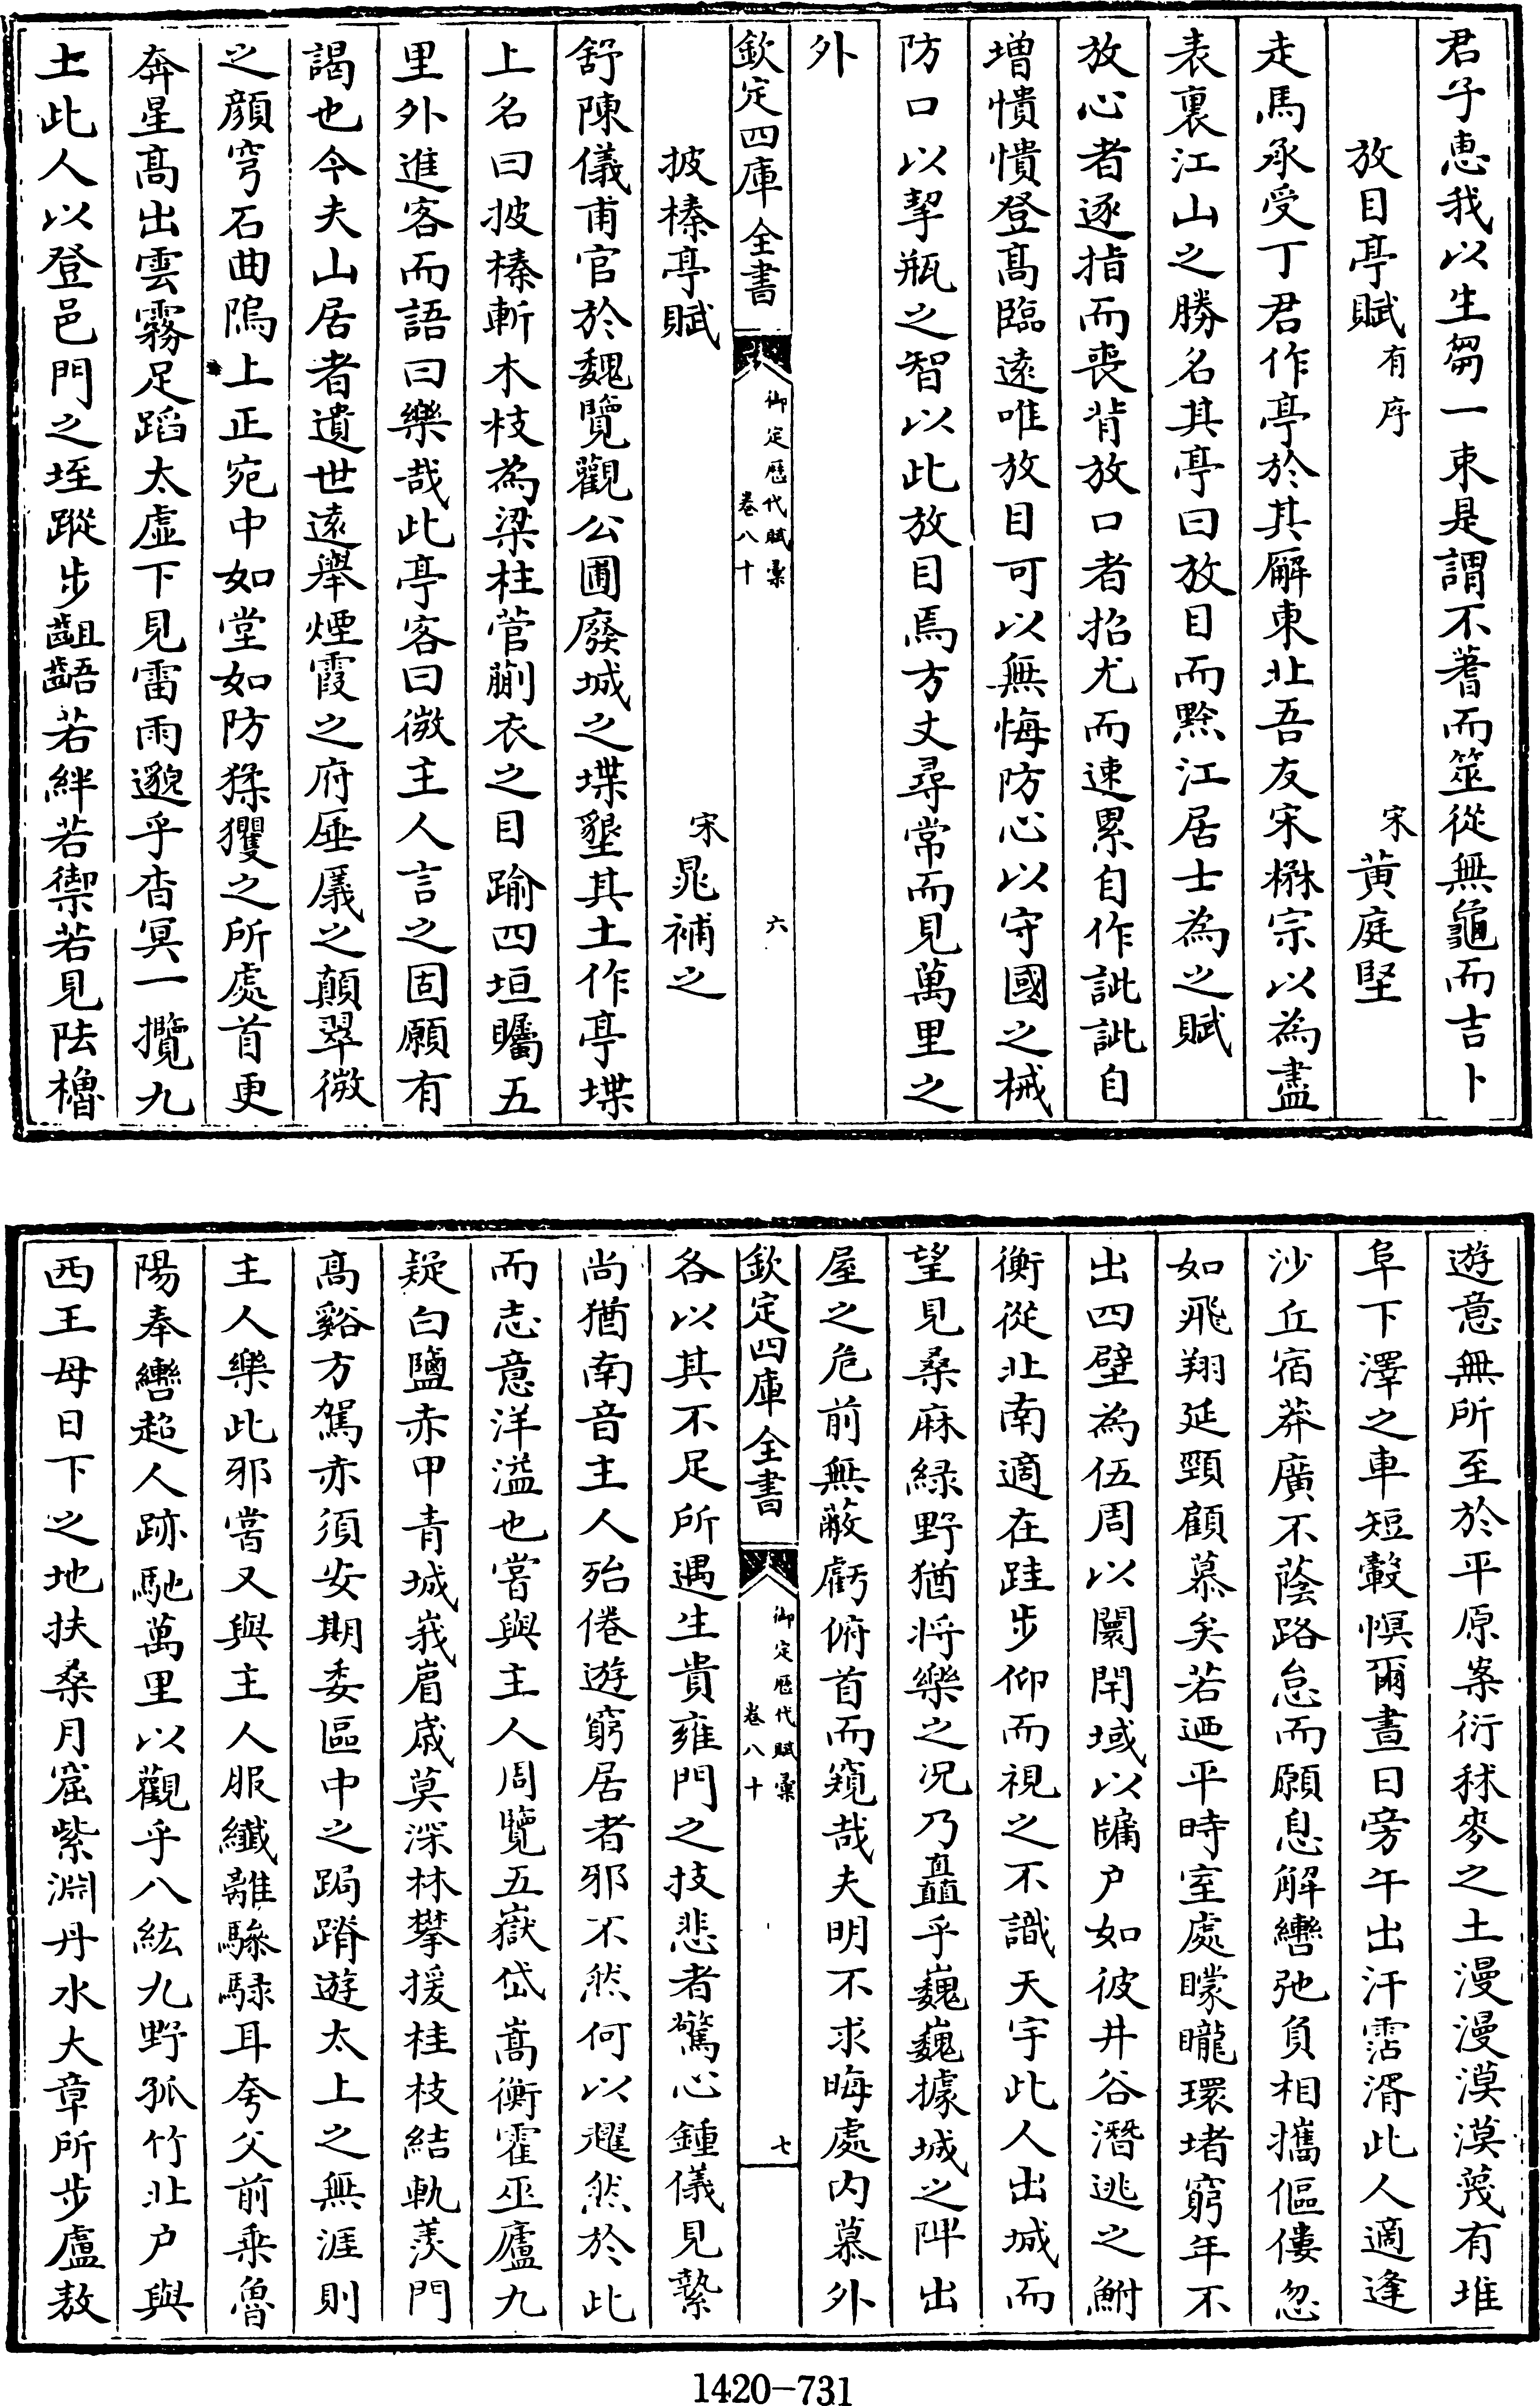 君子恵我以生芻一束是謂不蓍而筮從無龜而吉卜
放目亭賦有序 宋黄庭堅
走馬承受丁君作亭於其廨東北吾友宋楙宗以為盡
表裏江山之勝名其亭曰放目而黔江居士為之賦
放心者逐指而喪背放口者招尤而速累自作訿訿自
増憒憒登髙臨逺唯放目可以無悔防心以守國之械
防口以挈瓶之智以此放目焉方丈尋常而見萬里之
外
欽定四庫全書 御定歴代賦彚 卷八十 六
披榛亭賦 宋晁補之
舒陳儀甫官於魏覽觀公圃廢城之堞墾其土作亭堞
上名曰披榛斬木枝為梁柱菅蒯衣之目踰四垣矚五
里外進客而語曰樂哉此亭客曰微主人言之固願有
謁也今夫山居者遺世逺舉煙霞之府厜㕒之巔翠微
之顔穹石曲隖上正宛中如堂如防猱玃之所處首更
奔星髙出雲霧足蹈太虚下見雷雨邈乎杳冥一攬九
土此人以登邑門之垤蹤步齟齬若絆若禦若見阹櫓
遊意無所至於平原案衍秫麥之土漫漫漠漠蔑有堆
阜下澤之車短轂幎爾晝日旁午出汗霑湑此人適逢
沙丘宿莽廣不蔭路怠而願息解轡弛負相攜傴僂忽
如飛翔延頸顧慕矣若迺平時室處矇矓環堵窮年不
出四壁為伍周以闤閈域以牖户如彼井谷潛逃之鮒
衡從北南適在跬步仰而視之不識天宇此人出城而
望見桑麻緑野猶将樂之况乃矗乎巍巍據城之陴出
屋之危前無蔽虧俯首而窺哉夫明不求晦處内慕外
欽定四庫全書 御定歴代賦彚 卷八十 七
各以其不足所遇生貴雍門之技悲者驚心鍾儀見縶
尚猶南音主人殆倦遊窮居者邪不然何以矍然於此
而志意洋溢也嘗與主人周覽五嶽岱嵩衡霍巫廬九
疑白鹽赤甲青城峩眉嵗莫深林攀援桂枝結軌羨門
髙谿方駕亦須安期委區中之跼蹐遊太上之無涯則
主人樂此邪嘗又與主人服纖離驂騄耳夸父前乗魯
陽奉轡超人跡馳萬里以觀乎八紘九野孤竹北户與
西王母日下之地扶桑月窟紫淵丹水大章所步盧敖
1420-731